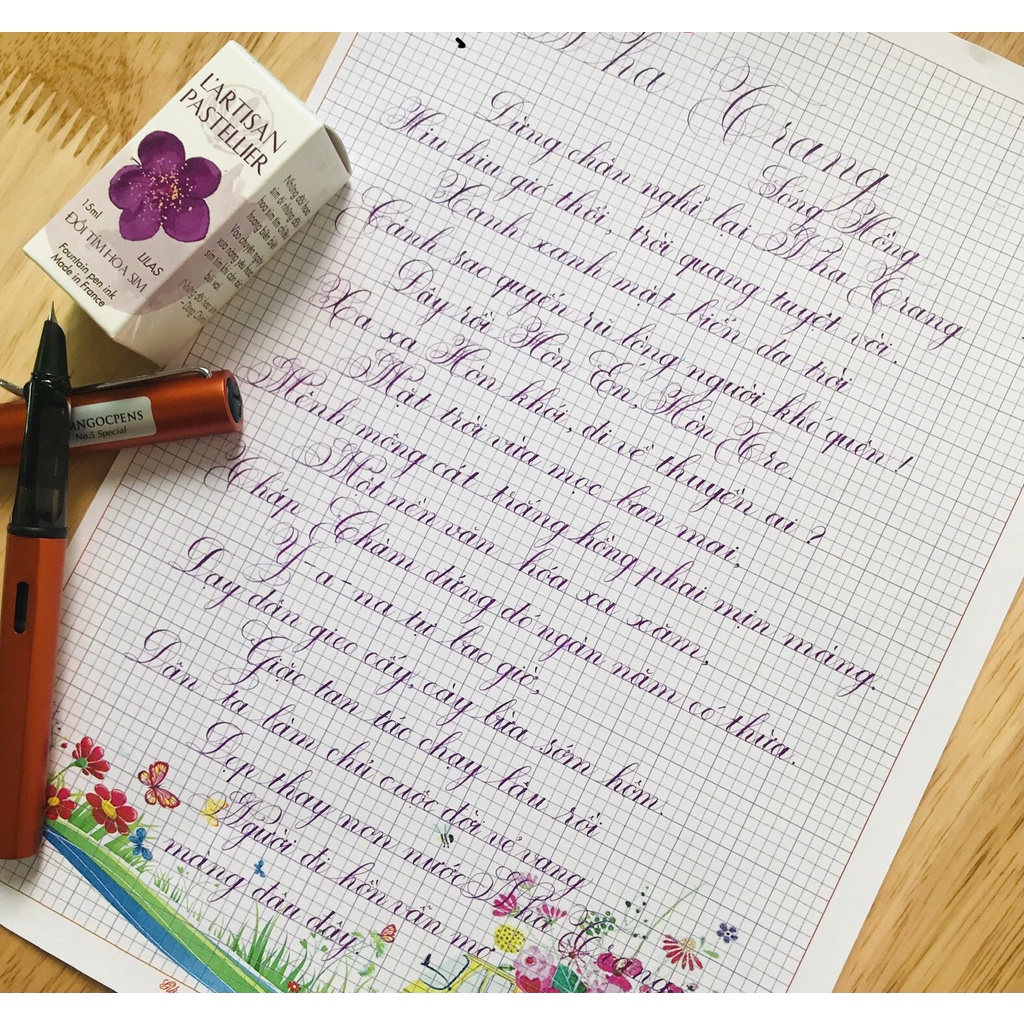 Nha Trang
Song Hồng
Dừng chân nghỉ lại Nha Trang
Hiu hiu gió thổi, trời quang tuyệt vời.
Xanh xanh mặt biển da trời
Cảnh sao quyến rũ lòng người khi quên !
Đây rồi Hòn Én, Hòn Tre.
Xa xa Hòn khói, đi về thuyền ai ?
Mặt trời vừa mọc ban mai,
Mênh mông cát trắng hồng phai mịn màng.
Một nền văn hóa xa xăm,
Tháp Chàm đứng đó ngàn năm có thừa.
Y-a-na tự bao giờ,
Dạy dân gieo cấy, cày bừa sớm hôm.
Giặc tan tác chạy lâu rồi
Dân ta làm chủ cuộc đời vẻ vang
Đẹp thay non nước Nha Trang
Người đi hồn vẫn mơ
màng đâu đây.
L'ARTISAN
PASTELLIER
15ml
LILAS
ĐỒI TÍM HOA SIM
Fountain pen ink
Made in France
Những đồi hoa
sim ôi những đồi
hoa sim tím chiều
hoang biền biệt
NGOCPENS
No.5 Special